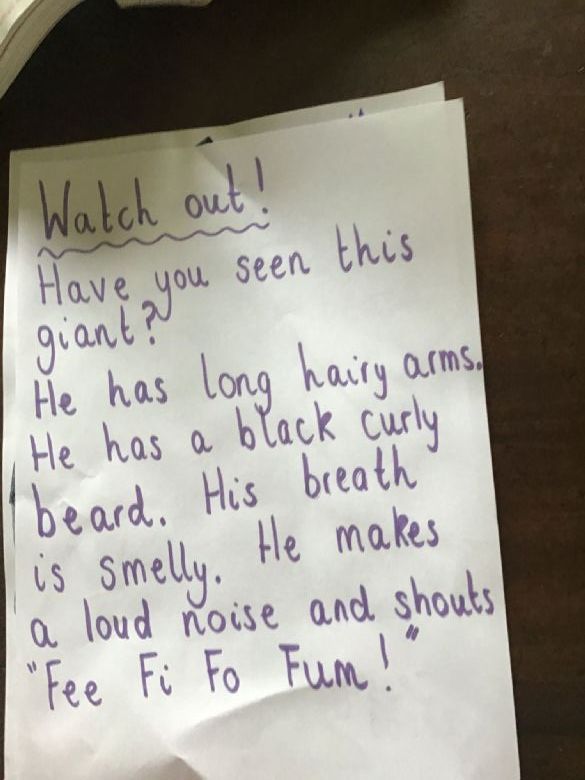 Watch out!
Have you seen this
giant?
He has long hairy arms.
He has a black curly
beard. His breath
is smelly. He makes
a loud noise and shouts
"Fee Fi Fo Fum!"